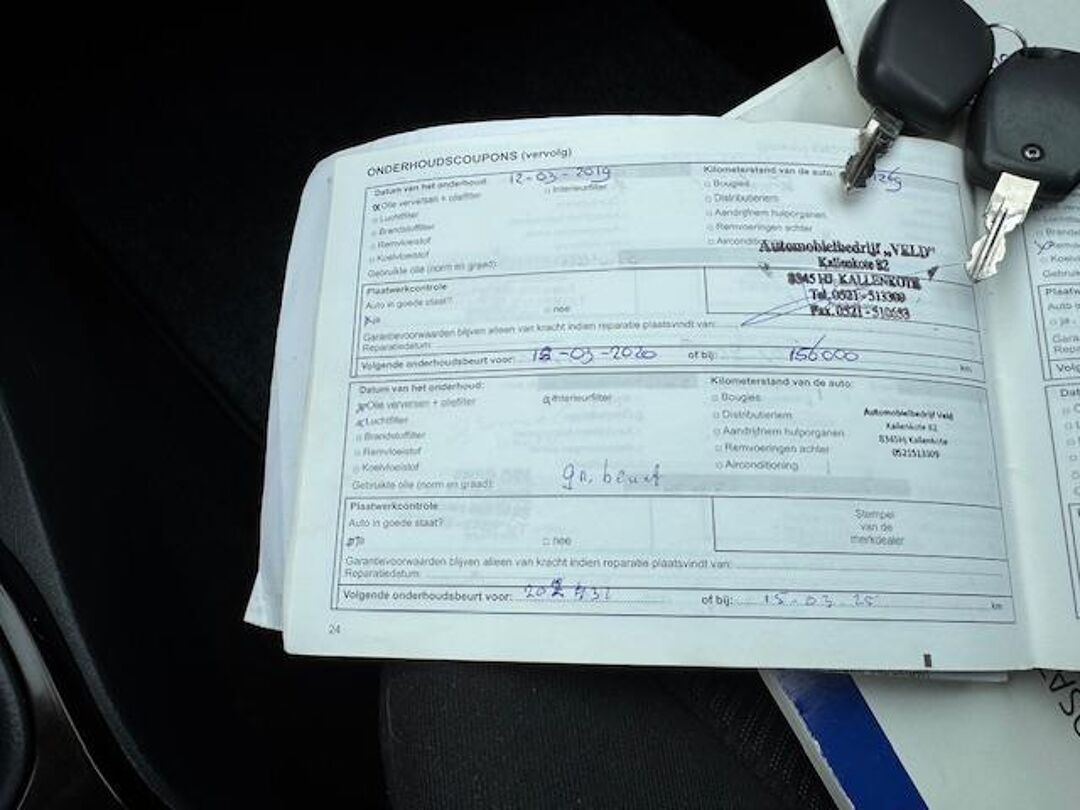 ONDERHOUDSCOUPONS (vervolg)
Datum van het onderhoud: 12-03-2019
Kilometerstand van de auto:
Olie verversen + oliefilter
Interieurfilter
Bougies
Luchtfilter
Distributieriem
Brandstoffilter
Aandrijfriem hulporganen
Remvloeistof
Remvoeringen achter
Koelvloeistof
Airconditioning
Gebruikte olie (norm en graad):
Automobielbedrijf „VELD"
Kallenkote 82
8345 HJ KALLENKOTE
Tel. 0521 - 513309
Fax. 0521 - 510653
Plaatwerkcontrole
Auto in goede staat?
ja
nee
Garantievoorwaarden blijven alleen van kracht indien reparatie plaatsvindt van:
Reparatiedatum:
Volgende onderhoudsbeurt voor: 12-03-2020 of bij: 156000 km
Datum van het onderhoud:
Kilometerstand van de auto:
Olie verversen + oliefilter
Interieurfilter
Bougies
Luchtfilter
Distributieriem
Brandstoffilter
Aandrijfriem hulporganen
Remvloeistof
Remvoeringen achter
Koelvloeistof
Airconditioning
Gebruikte olie (norm en graad): gr. beurt
Automobielbedrijf Veld
Kallenkote 82
8345HJ Kallenkote
0521513309
Plaatwerkcontrole
Auto in goede staat?
ja
nee
Stempel
van de
merkdealer
Garantievoorwaarden blijven alleen van kracht indien reparatie plaatsvindt van:
Reparatiedatum:
Volgende onderhoudsbeurt voor: of bij: 15-03-25 km
24